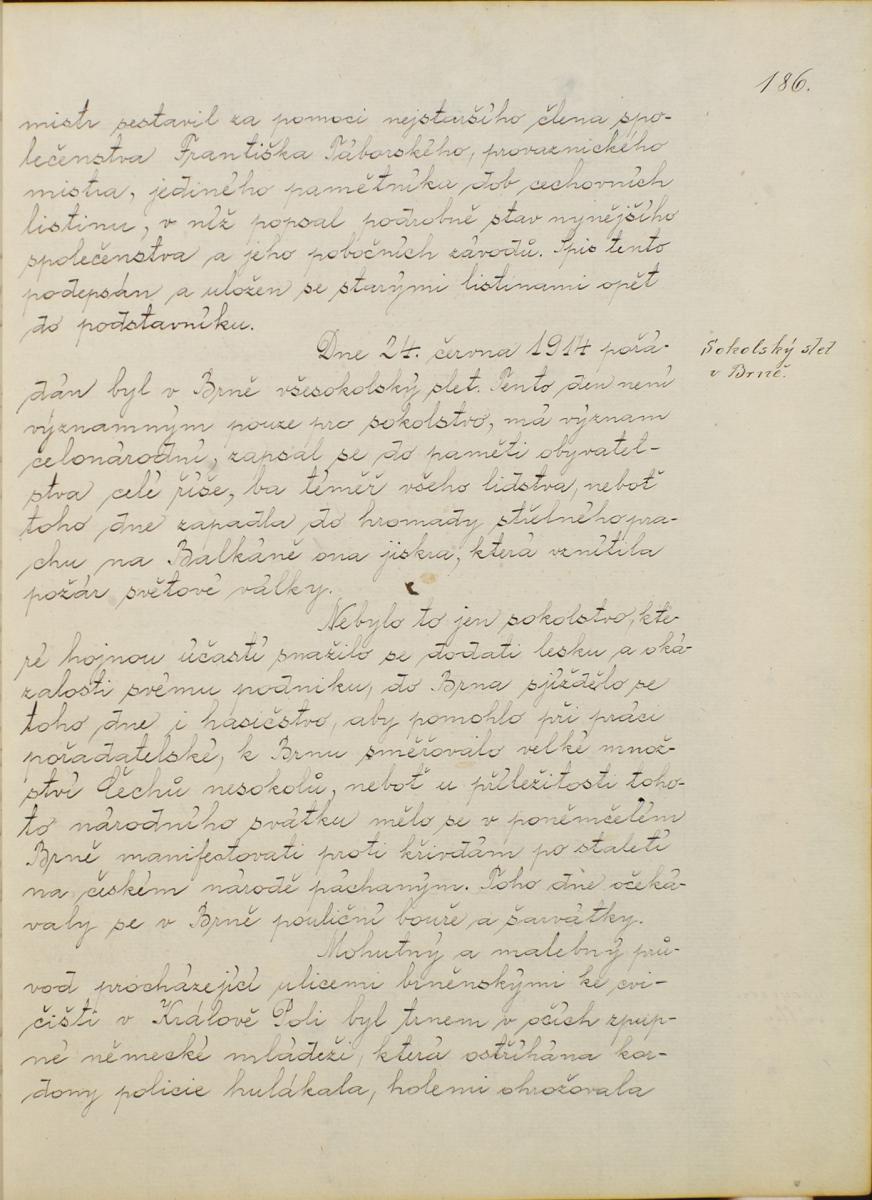 186.
mistr sestavil za pomoci nejstaršího člena spo-
lečenstva Františka Táborského, provaznického
mistra, jediného pamětníka dob cechovních
listinu, v níž popsal podrobně stav nynějšího
společenstva a jeho pobočních závodů. Spis tento
podepsán a uložen se starými listinami opět
do podstavníku.
Dne 24. června 1914 pořá-
Sokolský slet
v Brně.
dán byl v Brně všesokolský slet. Tento den není
významným pouze pro sokolstvo, má význam
celonárodní, zapsal se do paměti obyvatel-
stva celé říše, ba téměř všeho lidstva, neboť
toho dne zapadla do hromady střelného pra-
chu na Balkáně ona jiskra, která vznítila
požár světové války.
Nebylo to jen sokolstvo, kte-
ré hojnou účastí snažilo se dodati lesku a oká-
zalosti svému podniku, do Brna sjíždělo se
toho dne i hasičstvo, aby pomohlo při práci
pořadatelské, k Brnu směřovalo velké množ-
ství Čechů nesokolů, neboť u příležitosti toho-
to národního svátku mělo se v poněmčelém
Brně manifestovati proti křivdám po staletí
na českém národě páchaným. Toho dne očeká-
valy se v Brně pouliční bouře a šarvátky.
Mohutný a malebný prů-
vod procházející ulicemi brněnskými ke cvi-
čišti v Králově Poli byl trnem v očích zpup-
né německé mládeži, která ostříhána kor-
dony policie hulákala, holemi ohrožovala